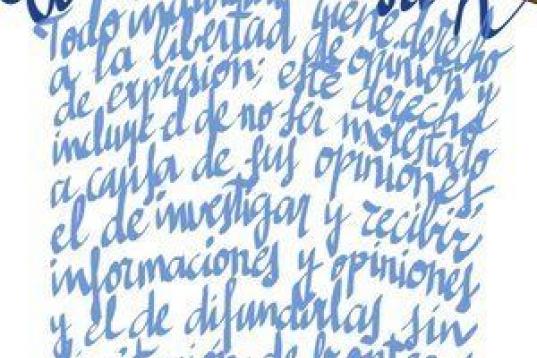 Todo individuo tiene derecho
a la libertad de opinión y
de expresión; este derecho
incluye el de no ser molestado
a causa de sus opiniones,
el de investigar y recibir
informaciones y opiniones
y el de difundirlas, sin
limitación de fronteras